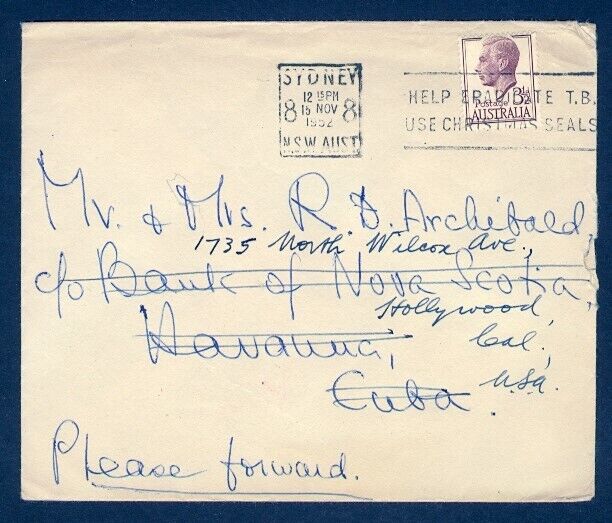 SYDNEY
12 15 PM
8 15 NOV 8
1952
N.S.W. AUST
HELP ERADICATE T.B.
USE CHRISTMAS SEALS
3½D
Postage
AUSTRALIA
Mr. & Mrs. R. D. Archibald,
1735 North Wilcox Ave.,
c/o Bank of Nova Scotia,
Hollywood,
Havanna,
Cal,
Cuba.
U.S.A.
Please forward.